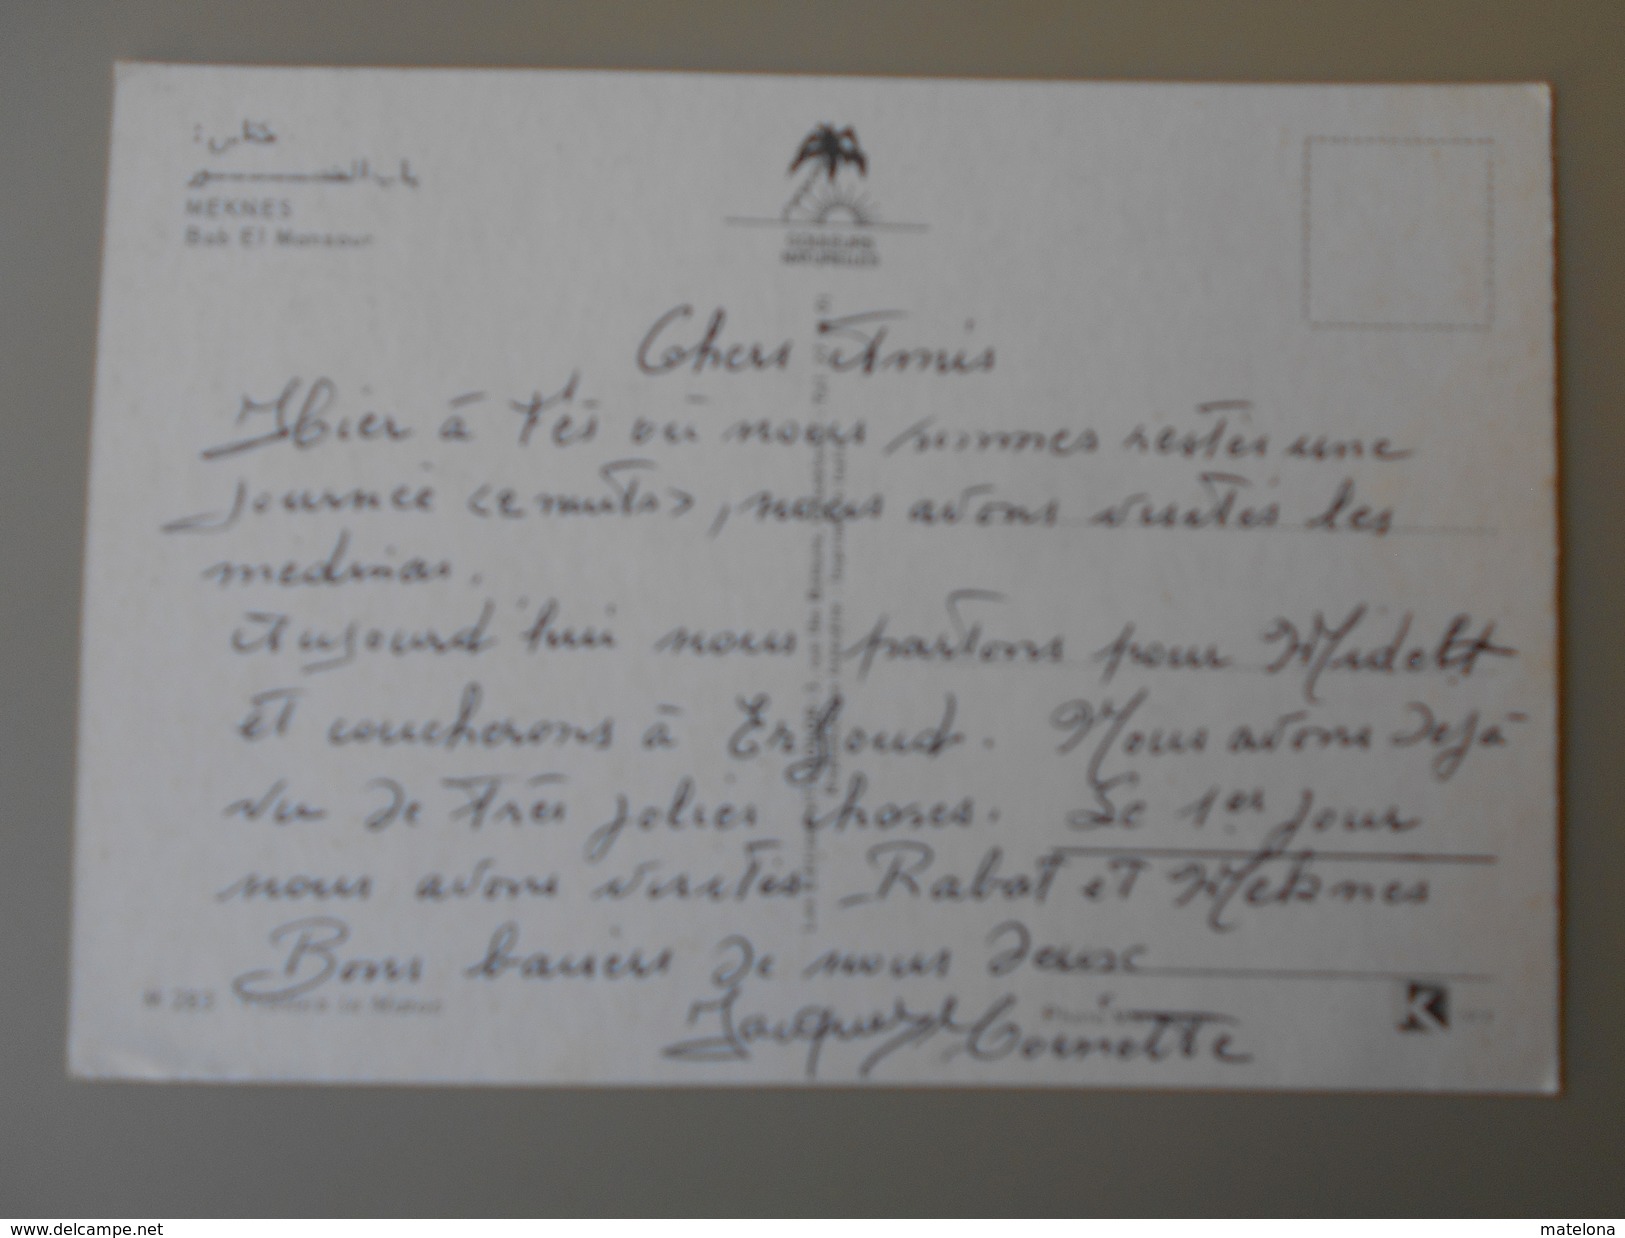 مكناس :
باب المنصـــــــــور
MEKNES
Bab El Mansour
COULEURS
NATURELLES
Chers Amis
Hier à Fès où nous sommes restés une
journée (2 nuits), nous avons visités les
medinas.
Aujourd'hui nous partons pour Midelt
et coucherons à Erfoud. Nous avons déjà
vu de très jolies choses. Le 1er jour
nous avons visités Rabat et Meknes
Bons baisers de nous deux
Jacques Cornette
M 283
K
www.delcampe.net
matelona